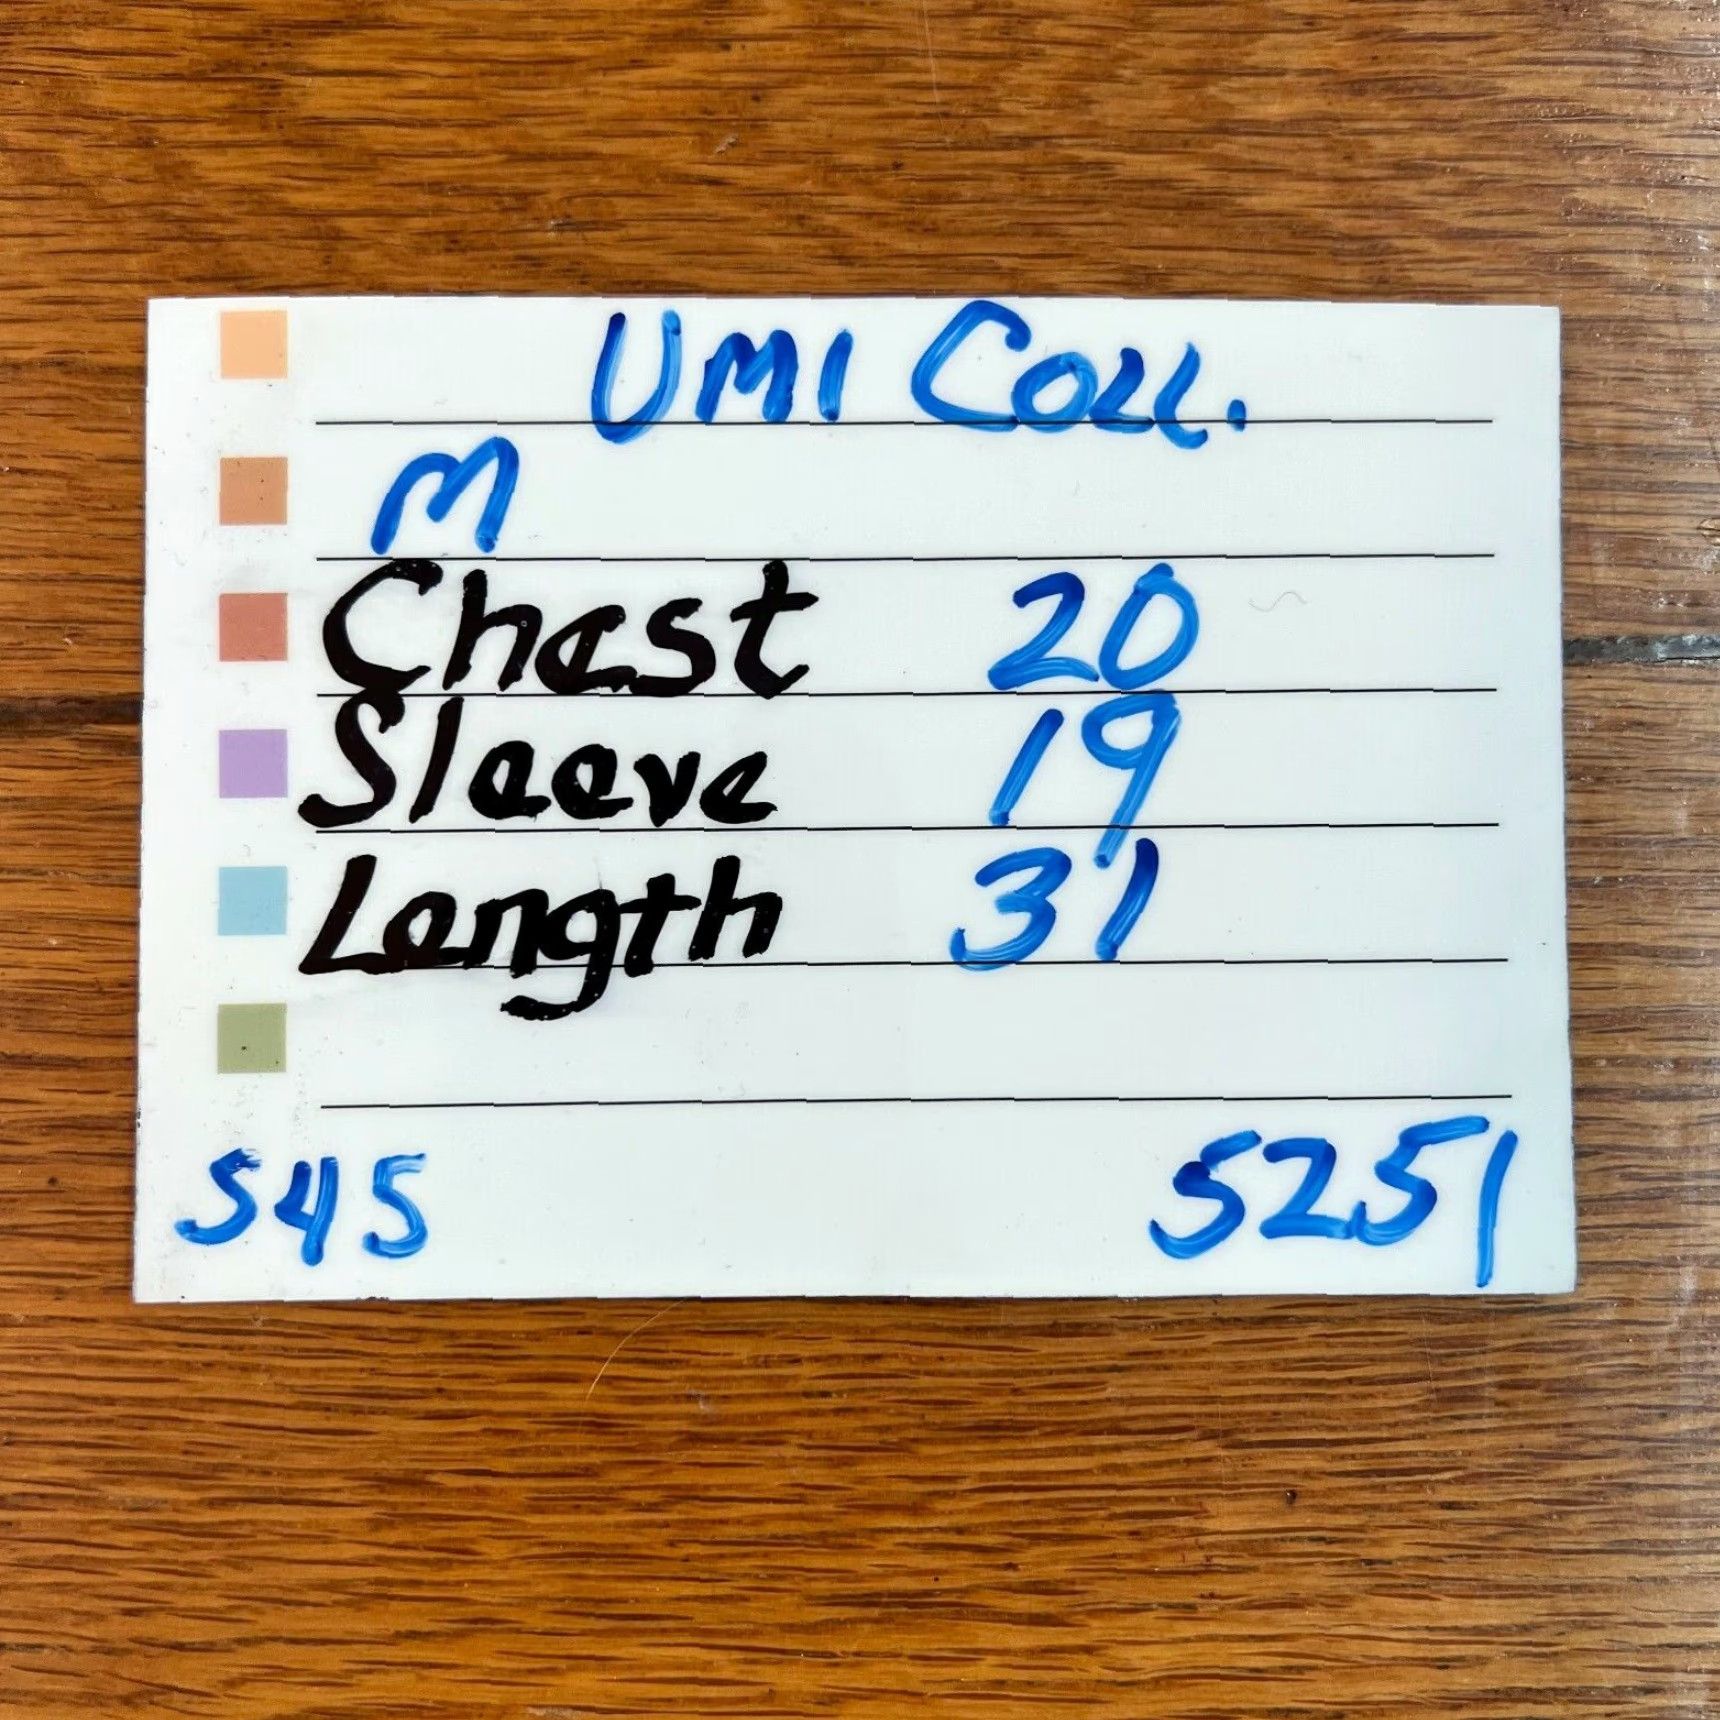 UMI COLL.
M
Chest 20
Sleeve 19
Length 31
S45 5251